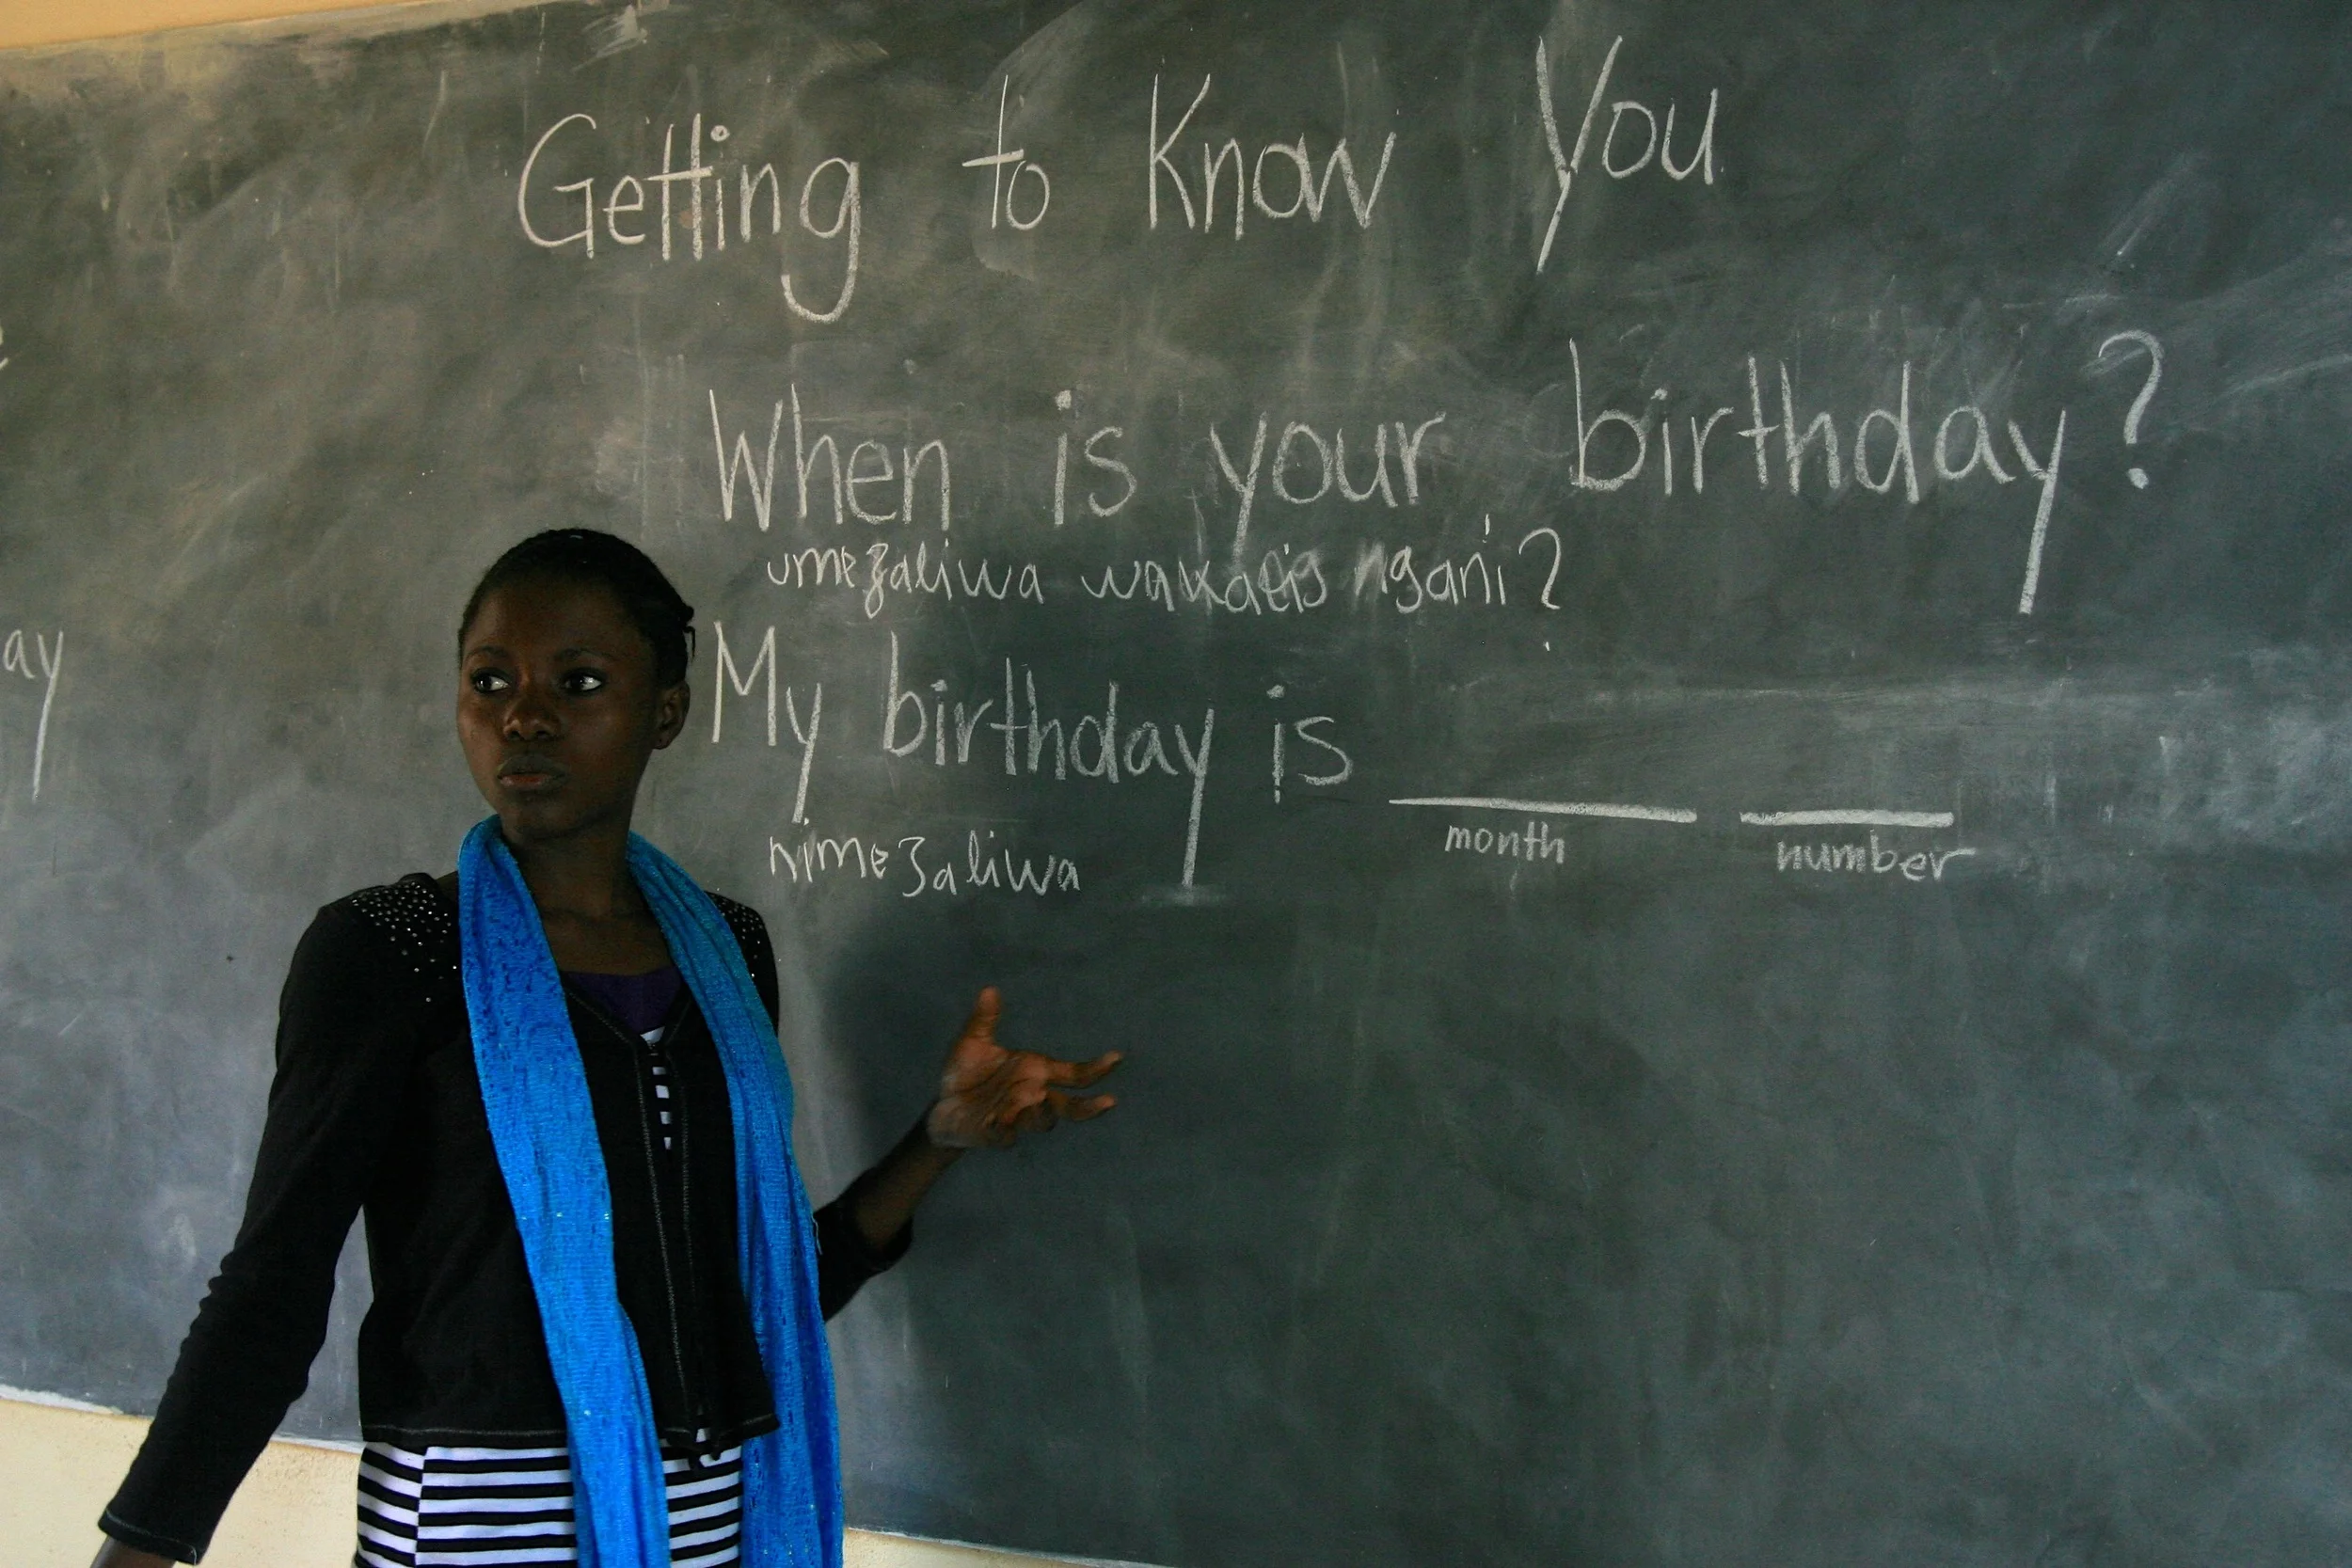 Getting to Know You
When is your birthday?
umezaliwa ngani?
My birthday is
month number
nimezaliwa
ay